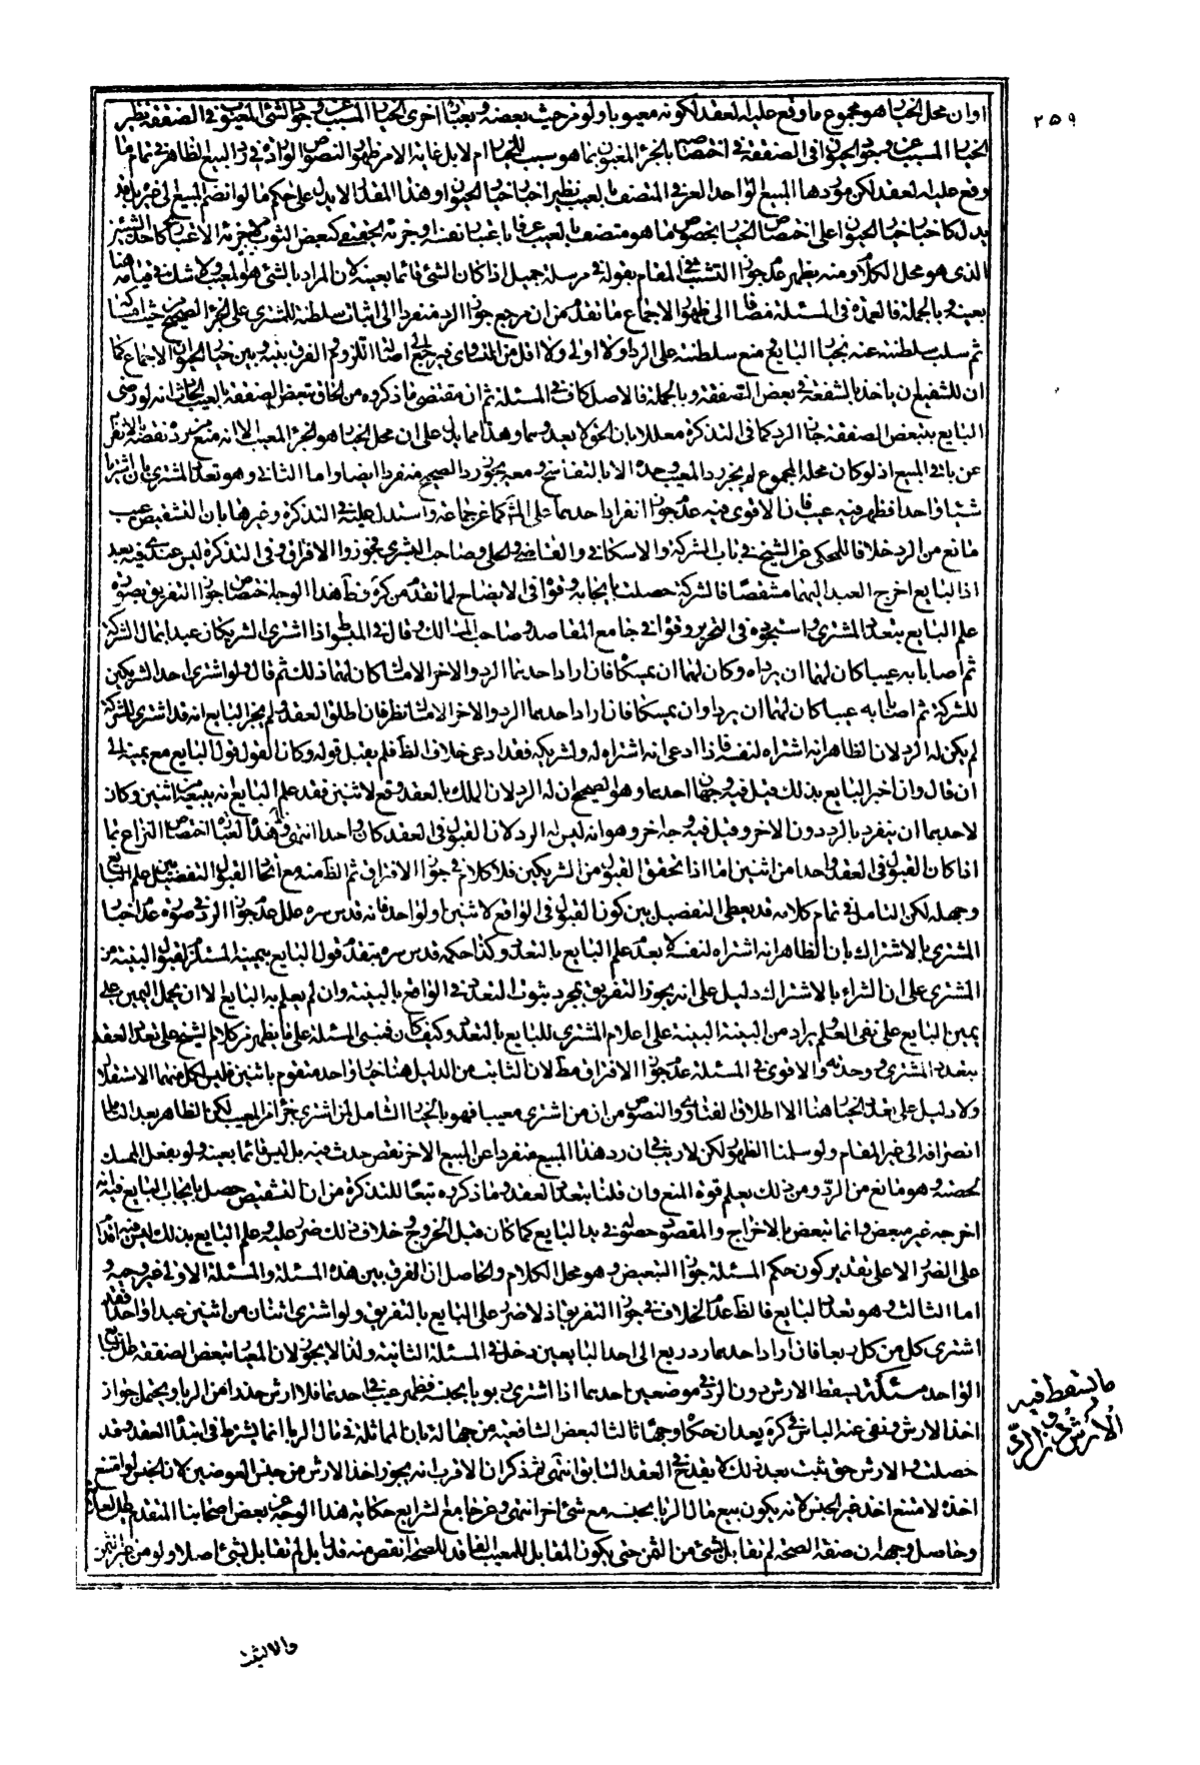 ٢٥٩
او ان محل الخيار هو مجموع ما وقع عليه العقد لكونه معيوبا ولو من حيث بعضه وبعبارة اخرى الخيار المسبب عن وجود الشئ المعيوب في الصفقة نظير
الخيار المسبب عن وجود الحيوان في الصفقة في اختصاصه بالجزء المعنون بما هو سبب للخيار ام لا بل غاية الامر ظهور النصوص الواردة في رد المبيع الظاهر في تمام ما
وقع عليه العقد لكن موردها المبيع الواحد العرفي المتصف بالعيب نظير اخبار خيار الحيوان وهذا المقدار لا يدل على حكم ما لو انضم المعيب الى غيره بل قد
يدل كاخبار خيار الحيوان على اختصاص الخيار بخصوص ما هو متصف بالعيب عرفا باعتبار نفسه او جزئه الحقيقي كبعض الثوب لا جزئه الاعتباري كاحد الشيئين
الذي هو محل الكلام ومنه يظهر عدم جواز التشبث في المقام بقوله في مرسلة جميل اذا كان الشئ قائما بعينه لان المراد بالشئ هو المعيب ولا شك في قيامه هنا
بعينه وبالجملة فالعمدة في المسئلة مضافا الى ظهور الاجماع ما تقدم من ان مرجع جواز الرد منفردا الى اثبات سلطنة للمشتري على الجزء الصحيح من حيث امساكه
ثم سلب سلطنته عنه بخيار البايع ومنع سلطنته على الرد اولا اولى ولا اقل من التساوي فيرجع الى اصالة اللزوم والفرق بينه وبين خيار الحيوان الاجماع كما
ان للشفيع ان يأخذ بالشفعة في بعض الصفقة وبالجملة فالاصل كاف في المسئلة ثم ان مقتضى ما ذكروه من الحاق تبعض الصفقة بالعيب الحادث انه لو رضي
البايع بتبعض الصفقة جاز الرد كما في التذكرة معللا بان الحق لا يعدوهما وهذا مما يدل على ان محل الخيار هو الجزء المعيب الا انه منع من رده نقصه بالانفراد
عن باقي المبيع اذ لو كان محله المجموع لم يجز رد المعيب وحده الا بالتفاسخ ومعه يجوز رد الصحيح منفردا ايضا واما الثاني وهو تعدد المشتري بان اشتريا
شيئا واحدا فظهر فيه عيب فان الاقوى فيه عدم جواز انفراد احدهما على المشهور كما عن جماعة واستدل عليه في التذكرة وغيرها بان التشقيص عيب
مانع من الرد خلافا للمحكي عن الشيخ في باب الشركة والاسكافي والقاضي والحلي وصاحب البشرى فجوزوا الافتراق وفي التذكرة ليس عندي فيه بعد
اذ البايع اخرج العبد اليهما مشقصا فالشركة حصلت بايجابه وقواه في الايضاح لما تقدم من التذكرة وظاهر هذا الوجه اختصاص جواز التفريق بصورة
علم البايع بتعدد المشتري واستجوده في التحرير وقواه في جامع المقاصد وصاحب المسالك وقال في المبسوط اذا اشترى الشريكان عبدا بمال الشركة
ثم اصابا به عيبا كان لهما ان يرداه وكان لهما ان يمسكاه فان اراد احدهما الرد والاخر الامساك كان لهما ذلك ثم قال ولو اشترى احد الشريكين
للشركة ثم اصابا به عيبا كان لهما ان يردا وان يمسكا فان اراد احدهما الرد والاخر الامساك نظر فان اطلق العقد ولم يخبر البايع انه قد اشترى للشركة
لم يكن له الرد لان الظاهر انه اشتراه لنفسه فاذا ادعى انه اشتراه له ولشريكه فقد ادعى خلاف الظاهر فلم يقبل قوله وكان القول قول البايع مع يمينه الى
ان قال وان اخبر البايع بذلك قيل فيه وجهان احدهما وهو الصحيح ان له الرد لان الملك بالعقد وقع لاثنين فقد علم البايع انه يبيعه من اثنين وكان
لاحدهما ان ينفرد بالرد دون الاخر وقيل فيه وجه اخر وهو انه ليس له الرد لان القبول في العقد كان واحدا انتهى وظاهر هذه العبارة اختصاص النزاع بما
اذا كان القبول في العقد واحدا من اثنين اما اذا تحقق القبول من الشريكين فلا كلام في جواز الافتراق ثم الظاهر منه مع اتحاد القبول التفصيل بين علم البايع
وجهله لكن التامل في تمام كلامه قد يعطي التفصيل بين كون القبول في الواقع لاثنين او لواحد فانه قدس سره علل عدم جواز الرد في صورة عدم اخبار
المشتري بالاشتراك بان الظاهر انه اشتراه لنفسه لا بعدم علم البايع بالتعدد وكذا حكمه قدس سره بتقديم قول البايع بيمينه المستلزم لقبول البينة من
المشتري على ان الشراء بالاشتراك دليل على انه يجوز التفريق بمجرد ثبوت التعدد في الواقع بالبينة وان لم يعلم به البايع الا ان يحمل اليمين على
يمين البايع على نفي العلم ويراد من البينة البينة على اعلام المشتري للبايع بالتعدد وكيف كان فمبنى المسئلة على ما يظهر من كلام الشيخ على تعدد العقد
بتعدد المشتري ووحدته والاقوى في المسئلة عدم جواز الافتراق مطلقا لان الثابت من الدليل هنا خيار واحد متقوم باثنين فليس لكل منهما الاستقلال
ولا دليل على تعدد الخيار هنا الا اطلاق الفتاوى والنصوص من ان من اشترى معيبا فهو بالخيار الشامل لمن اشترى جزءا من المعيب لكن الظاهر بعد التامل
انصرافه الى غير المقام ولو سلمنا الظهور لكن لا ريب في ان رد هذا المبيع منفردا عن المبيع الاخر نقص حدث فيه بل ليس قائما بعينه ولو بفعل الممسك
لحصته وهو مانع من الرد ومن ذلك يعلم قوة المنع وان قلنا بتعدد العقد وما ذكروه تبعا للتذكرة من ان التشقيص حصل بايجاب البايع فيه انه
اخرجه غير مبعض وانما تبعض بالاخراج والمقصود حصوله في يد البايع كما كان قبل الخروج وخلاف ذلك ضرر عليه وعلم البايع بذلك ليس فيه اقدام
على الضرر الا على تقدير كون حكم المسئلة جواز التبعيض وهو محل الكلام والحاصل ان الفرق بين هذه المسئلة والمسئلة الاولى غير وجيه و
اما الثالث وهو تعدد البايع فالظاهر عدم الخلاف في جواز التفريق اذ لا ضرر على البايع بالتفريق ولو اشترى اثنان من اثنين عبدا واحدا فقد
اشترى كل من كل ربعا فان اراد احدهما رد ربع الى احد البايعين دخل في المسئلة الثانية ولذا لا يجوز لان المعيار تبعض الصفقة على البايع
الواحد مسئلة يسقط الارش دون الرد في موضعين احدهما اذا اشترى ربويا بجنسه فظهر عيب في احدهما فلا ارش حذرا من الربا ويحتمل جواز
اخذ الارش ونفى عنه الباس في التذكرة بعد ان حكاه وجها ثالثا لبعض الشافعية موجها له بان المماثلة في مال الربا انما يشترط في ابتداء العقد وقد
حصلت والارش حق ثبت بعد ذلك لا يقدح في العقد السابق انتهى ثم ذكر ان الاقرب انه يجوز اخذ الارش من جنس العوضين لان الجنس لو امتنع
اخذه لامتنع اخذ غير الجنس لانه يكون بيع مال الربا بجنسه مع شئ اخر انتهى وعن جامع الشرايع حكاية هذا الوجه عن بعض اصحابنا المتقدم على العلامة
وحاصل وجهه ان صفة الصحة لم تقابل بشئ من الثمن حتى يكون المقابل للمعيب الفاقد للصحة انقص منه قدرا بل لم تقابل بشئ اصلا ولو من غير الثمن
ما يسقط فيه
الارش دون الرد
والا لثبت